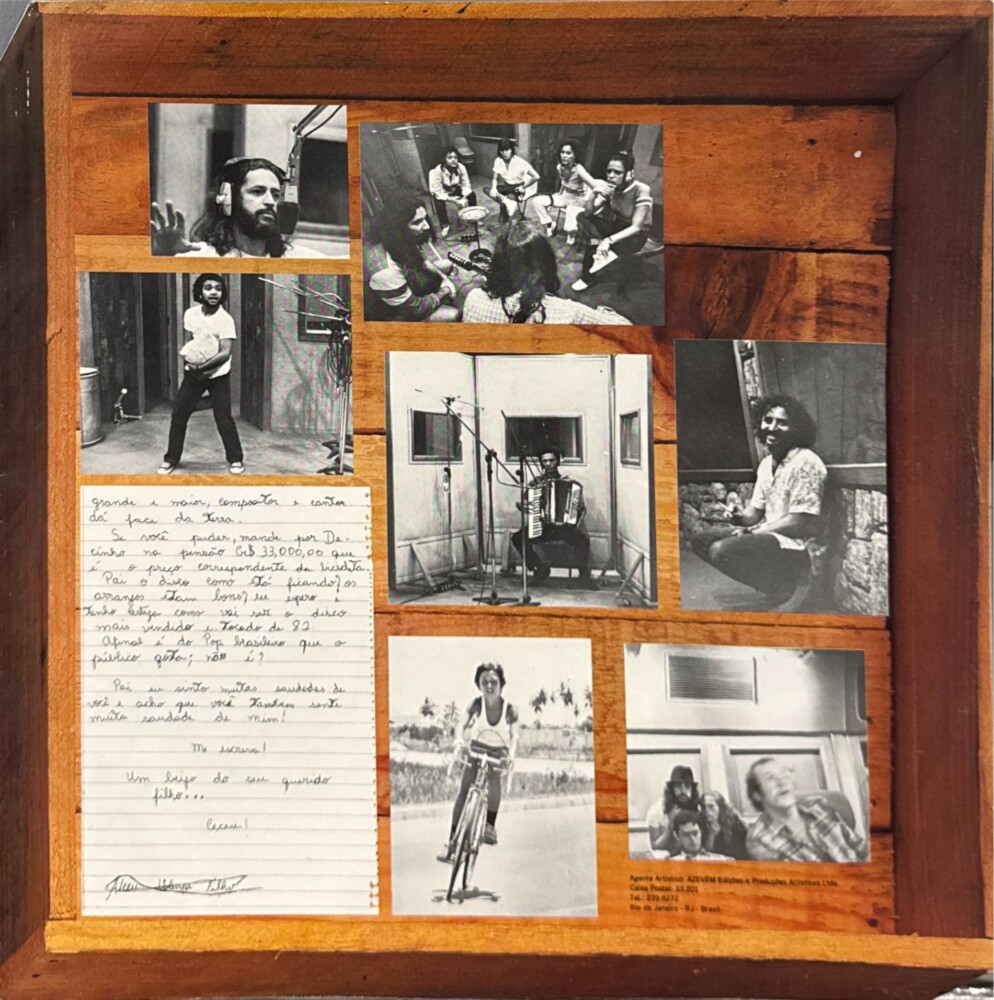 grande e maior, compositor e cantor
da face da terra.
Se você puder, mande por De-
cinho na pensão Cr$ 33,000,00 que
é o preço correspondente da bicicleta.
Pai o disco como está ficando? os
arranjos estam bons? eu espero e
tenho certeza como vai ser o disco
mais vendido e tocado de 82.
Afinal é do Pop brasileiro que o
público gosta; não é?
Pai eu sinto muitas saudades de
você e acho que você também sente
muita saudade de mim!
Me escreva!
Um beijo do seu querido
filho...
Ceceu!
Alceu Valença Filho
Agente Artístico: AZEVEM Edições e Produções Artísticas Ltda.
Caixa Postal: 33.201
Tel.: 239.9272
Rio de Janeiro - RJ - Brasil